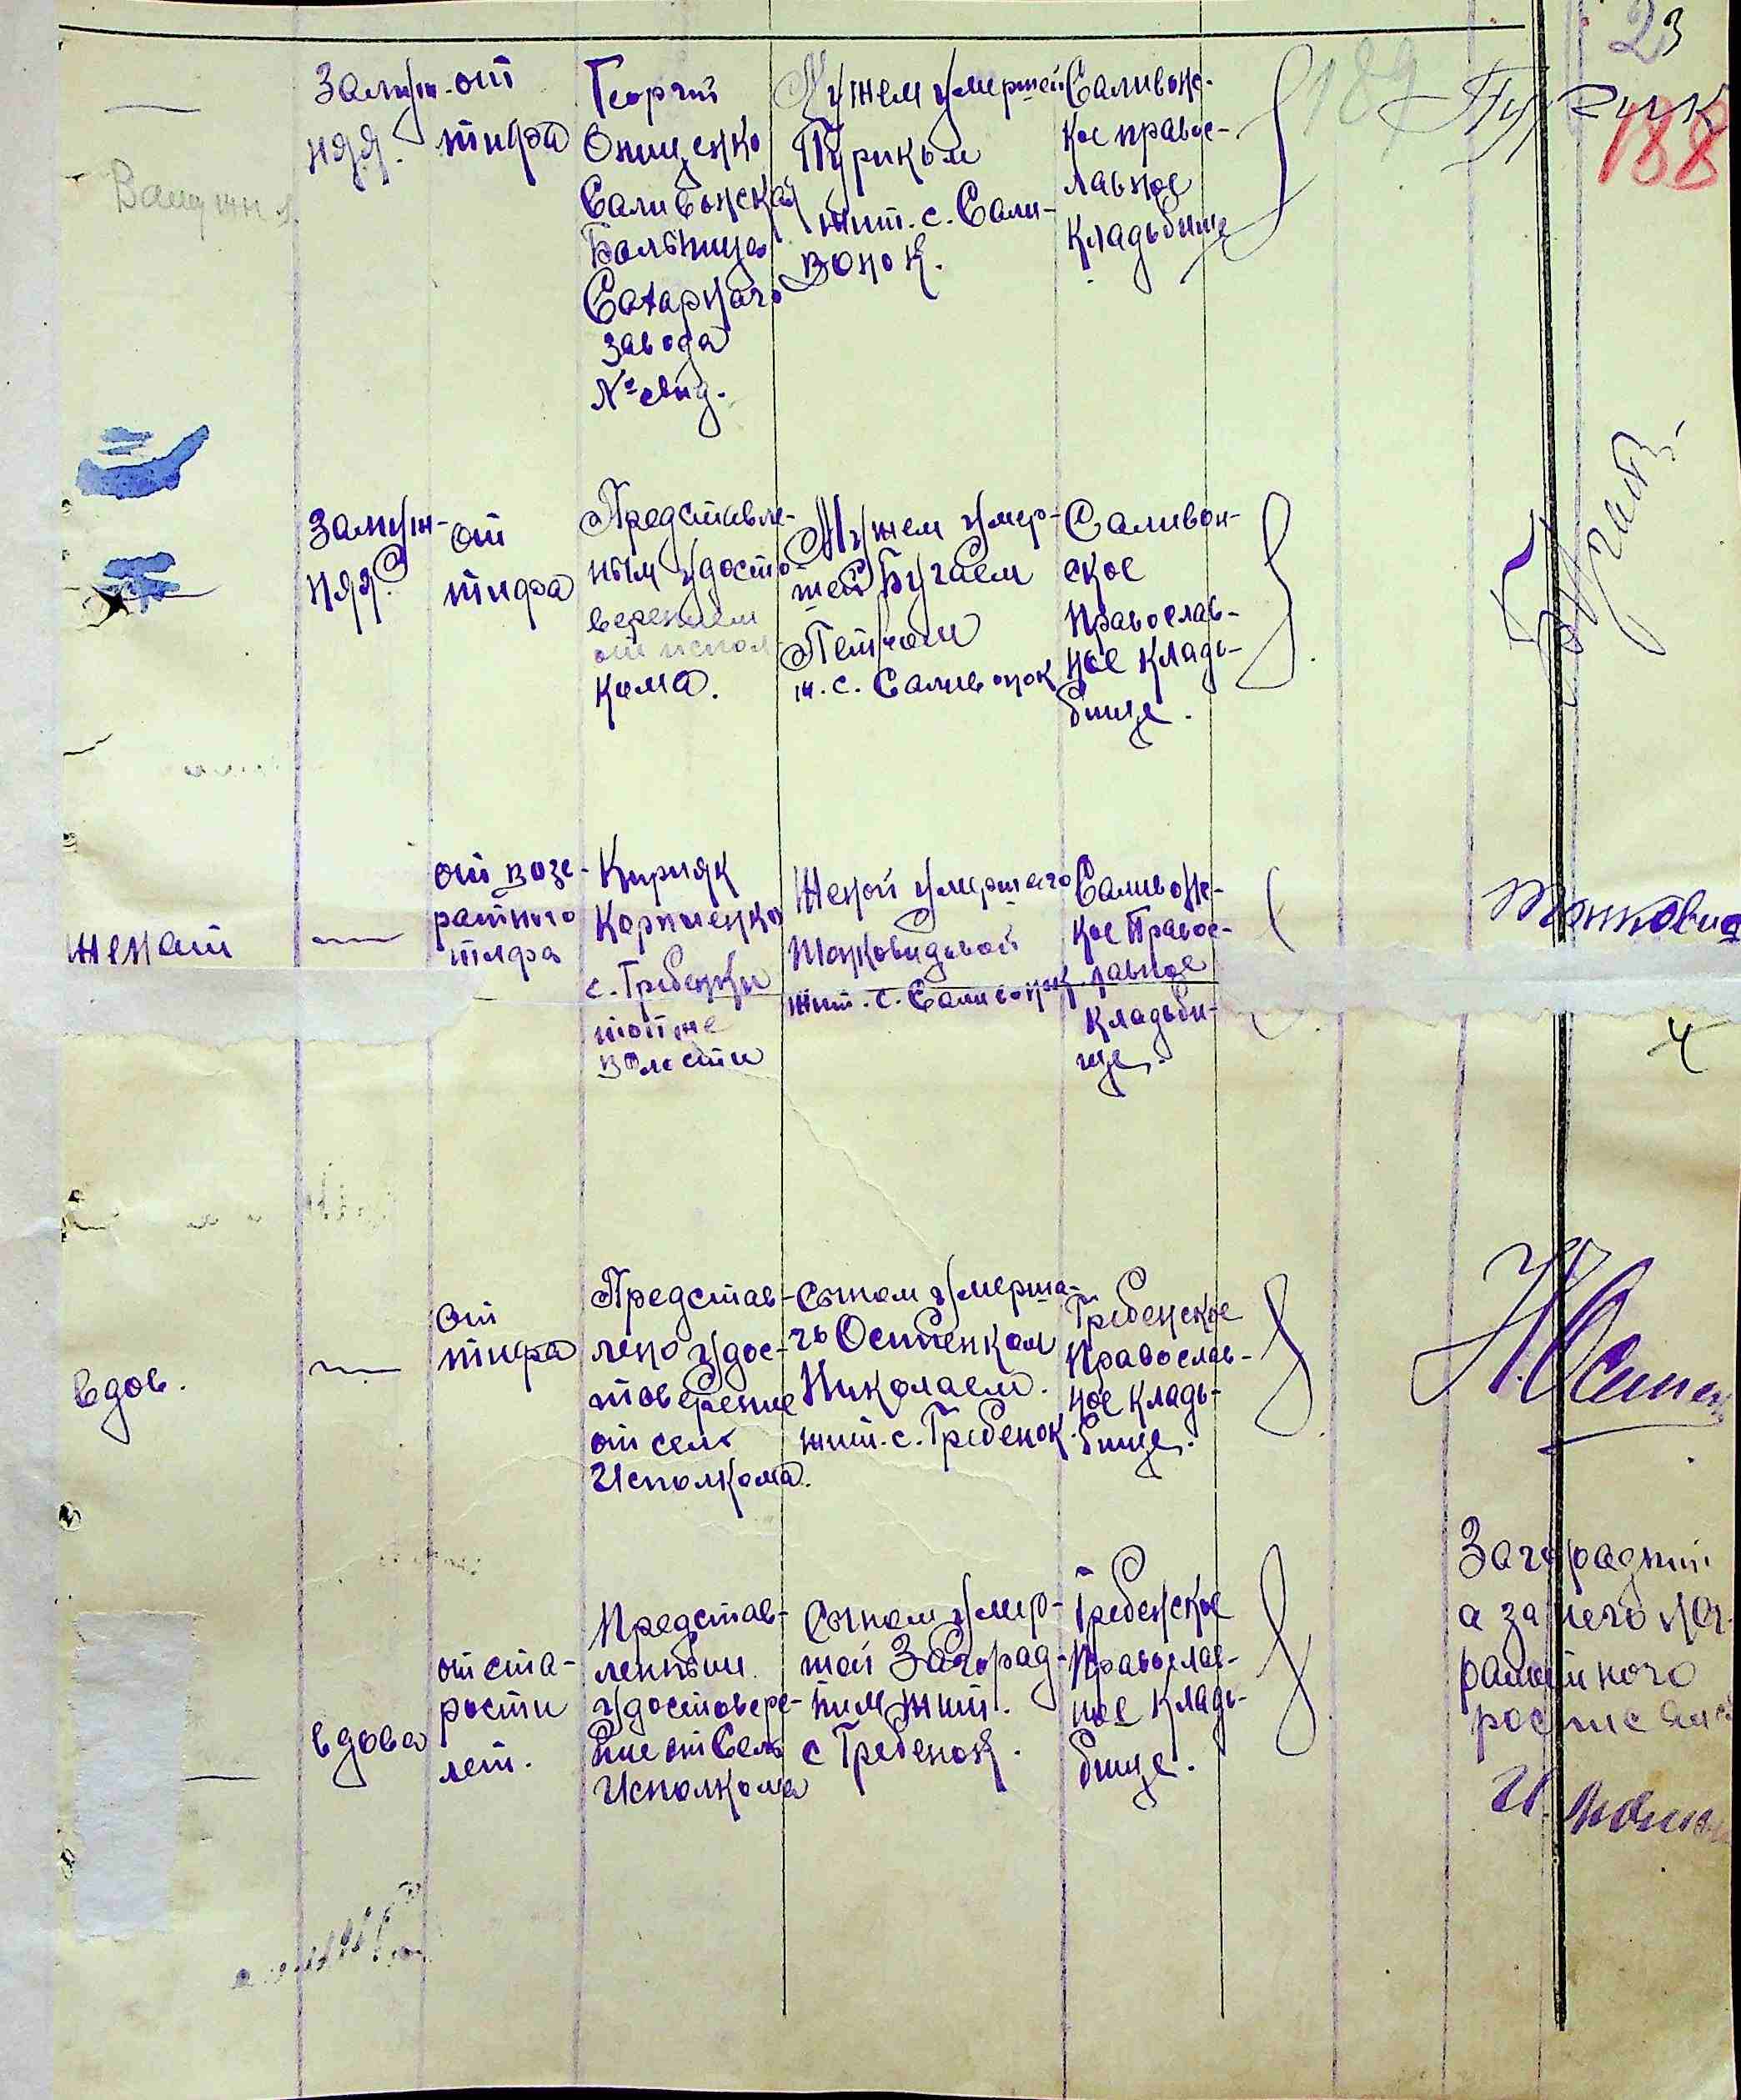 23
189
188
Замуж-
няя.
от
тифа
Георгий
Онищенко
Саливонская
Больница
Сахарнаго
завода
№ свид.
Мужем умершей
Пуриком
жит. с. Сали-
вонок.
Саливонс-
кое правос-
лавное
Кладьбище
Замуж-
няя.
от
тифа
Представле-
ным удосто-
верением
от испол
кома.
Мужем умер-
шей Бугаем
Петром
ж. с. Саливонок
Саливон-
ское
Православ-
ное Кладь-
бище.
женат
от возв-
ратного
тифа
Кирияк
Корниенко
с. Гребенки
тойже
волости
Женой умершаго
жит. с. Саливонок
Саливонс-
кое Правос-
лавное
Кладьби-
ще.
4
вдов.
от
тифа
Представ-
лено удос-
товерение
от сель
Исполкома.
Сыном умерша-
го Остенком
Николаем.
жит. с. Гребенок.
Гребенское
Православ-
ное Кладь-
бище.
вдова
от ста-
рости
лет.
Представ-
ленным
удостовере-
ние от Сель
Исполкома
Сыном умер-
шей Загород-
ним жит.
с Гребенок.
Гребенское
Православ-
ное Кладь-
бище.
а за него нег-
рамотного